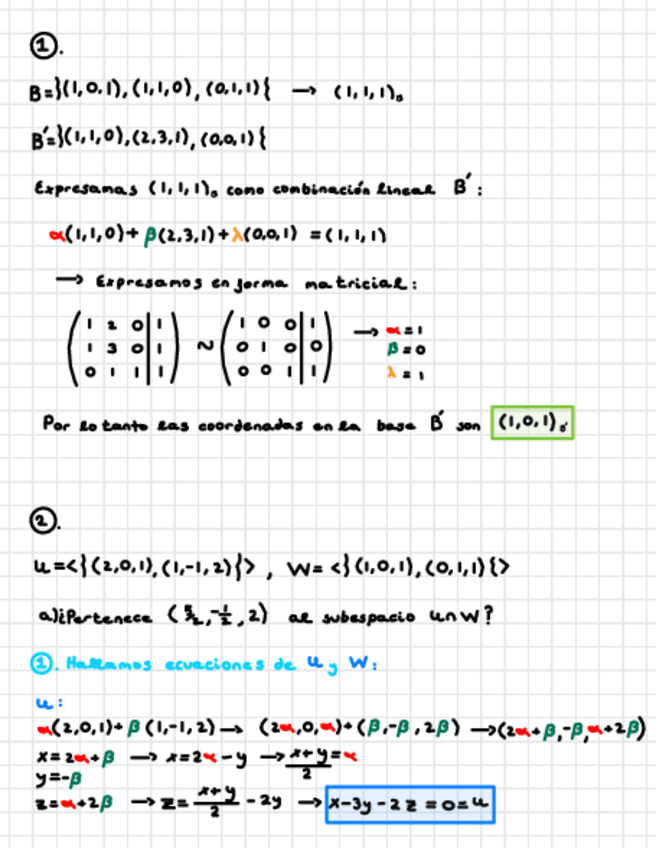 ①.
B=}(1,0,1),(1,1,0),(0,1,1){ → (1,1,1)B
B'=}(1,1,0),(2,3,1),(0,0,1){
Expresamos (1,1,1)B como combinación lineal B':
α(1,1,0)+β(2,3,1)+λ(0,0,1) =(1,1,1)
→ Expresamos en forma matricial:
(1 2 0|1) ~ (1 0 0|1) → α=1
(1 3 0|1) (0 1 0|0) β=0
(0 1 1|1) (0 0 1|1) λ=1
Por lo tanto las coordenadas en la base B' son (1,0,1)B'
②.
U=<}(2,0,1),(1,-1,2){> , W=<}(1,0,1),(0,1,1){>
a)¿Pertenece (5/2,-1/2,2) al subespacio U∩W?
①. Hallamos ecuaciones de U y W:
U:
α(2,0,1)+β(1,-1,2)→ (2α,0,α)+(β,-β,2β) →(2α+β,-β,α+2β)
x=2α+β → x=2α-y → x+y/2=α
y=-β
z=α+2β → z= x+y/2 -2y → x-3y-2z=0=U